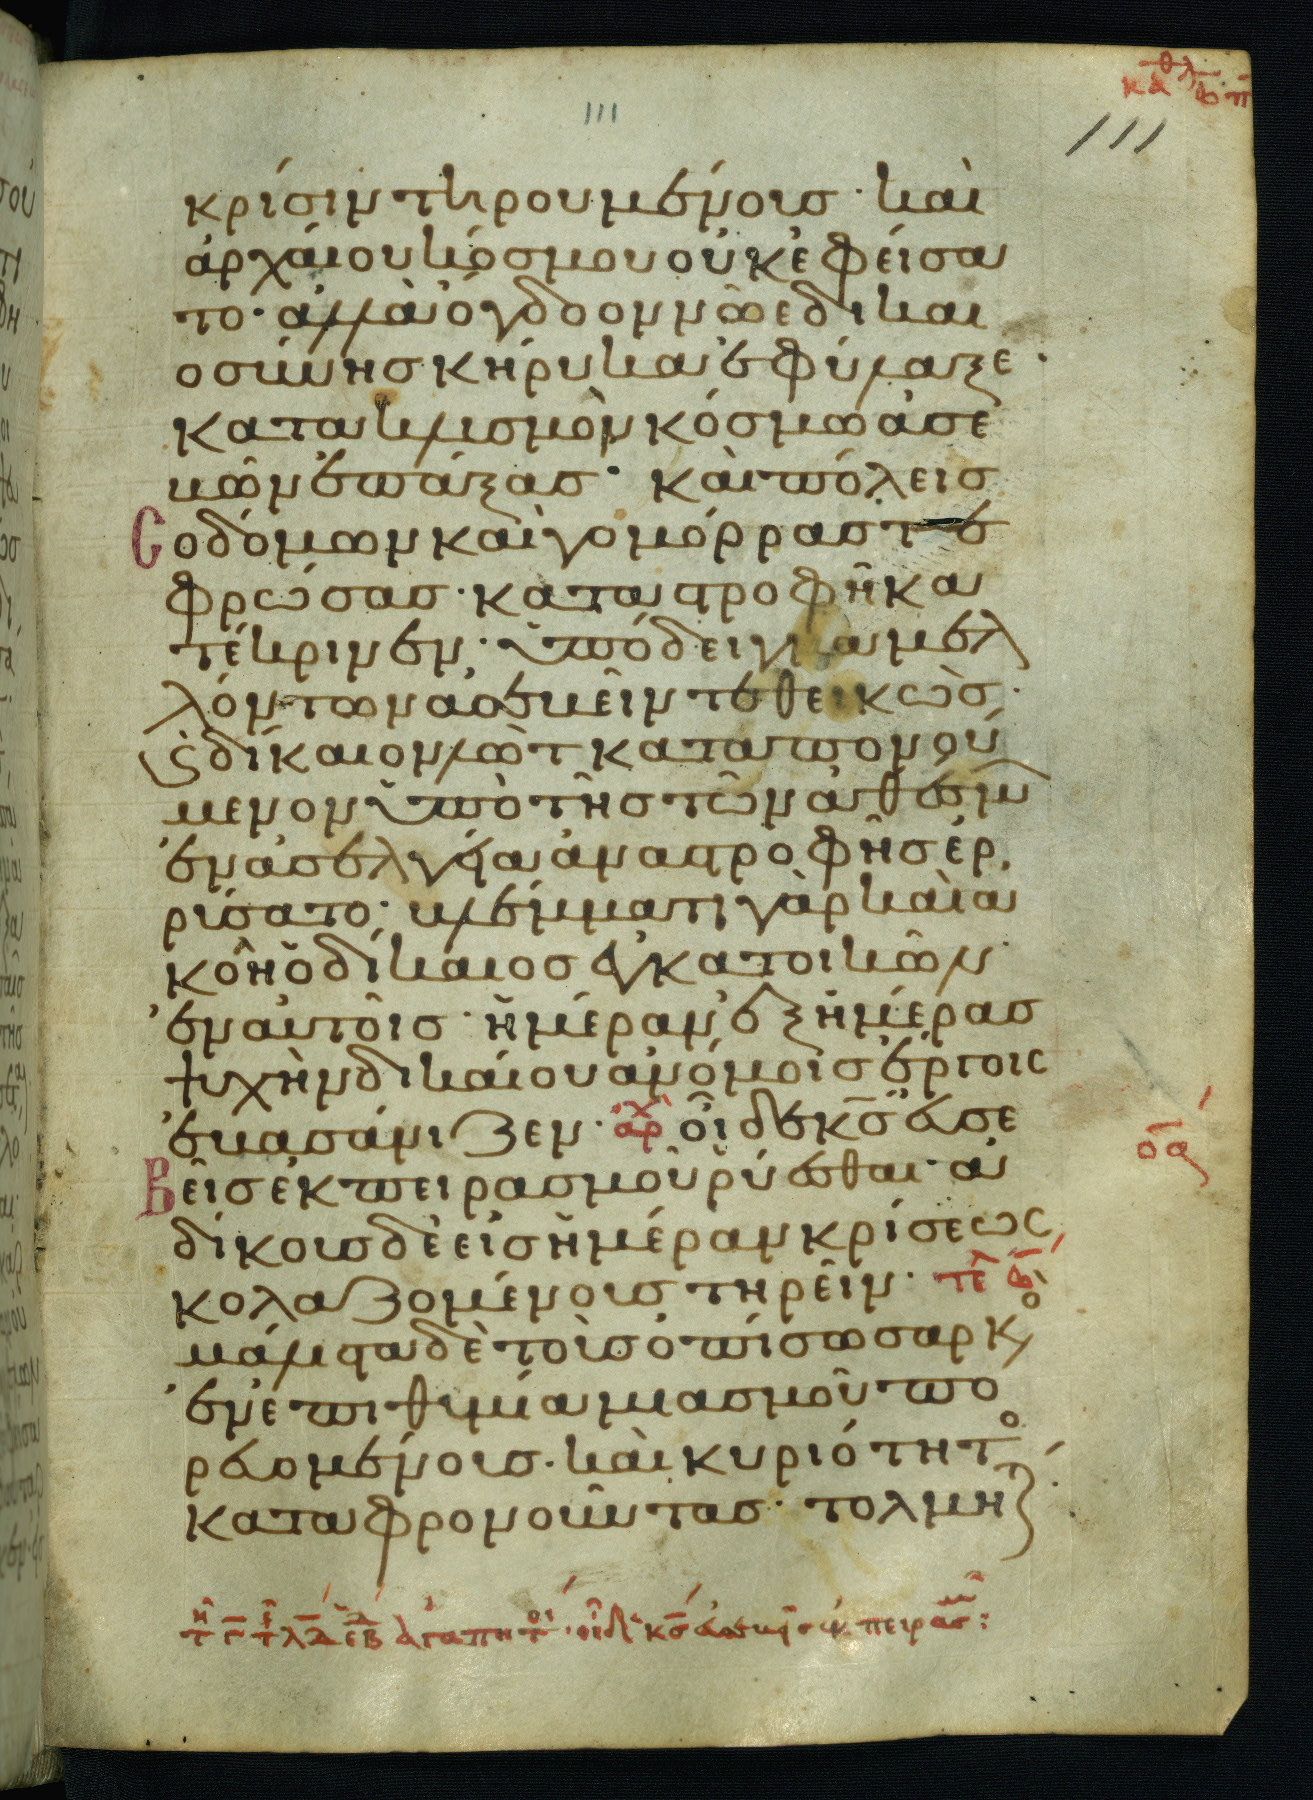 111
111
κρίσιν τηρουμένους· καὶ
ἀρχαίου κόσμου οὐκ ἐφείσα
το· ἀλλὰ ὄγδοον νῶε δικαι
οσύνης κήρυκα ἐφύλαξε·
κατακλυσμὸν κόσμω ἀσε
βῶν ἐπάξας· καὶ πόλεις
Σοδόμων καὶ γομόρρας τε
φρώσας· καταστροφῆ κα
τέκρινεν· ὑπόδειγμα μελ
λόντων ἀσεβεῖν τεθεικὼς·
καὶ δίκαιον λὼτ καταπονού
μενον ὑπὸ τῆς τῶν ἀθέσμων
ἐν ἀσελγεία ἀναστροφῆς ἐρ
ρύσατο· βλέμματι γὰρ καὶ ἀ
κοῆ ὁ δίκαιος ἐγκατοικῶν
ἐν αὐτοῖς· ἡμέραν ἐξ ἡμέρας
ψυχὴν δικαίου ἀνόμοις ἔργοις
ἐβασάνιζεν· ἀρχ οἶδε κς εὐσε
Βεῖς ἐκ πειρασμοῦ ῥύεσθαι· ἀ
δίκους δὲ εἰς ἡμέραν κρίσεως
κολαζομένους τηρεῖν· τελ
μάλιστα δὲ τοὺς ὀπίσω σαρκὸς
ἐν ἐπιθυμία μιασμοῦ πο
ρευομένους· καὶ κυριότητος
καταφρονοῦντας· τολμη
οα
ἀγαπητοι· οἶδε κς εὐσεβεῖς ἐκ πειρασμ: